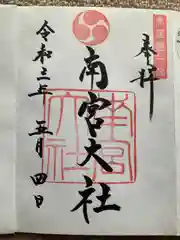 奉拝
南宮大社
南宮
大社
令和三年五月四日